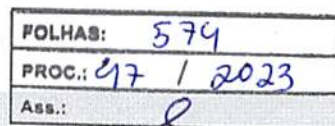 FOLHAS: 574
PROC.: 47 / 2023
Ass.: